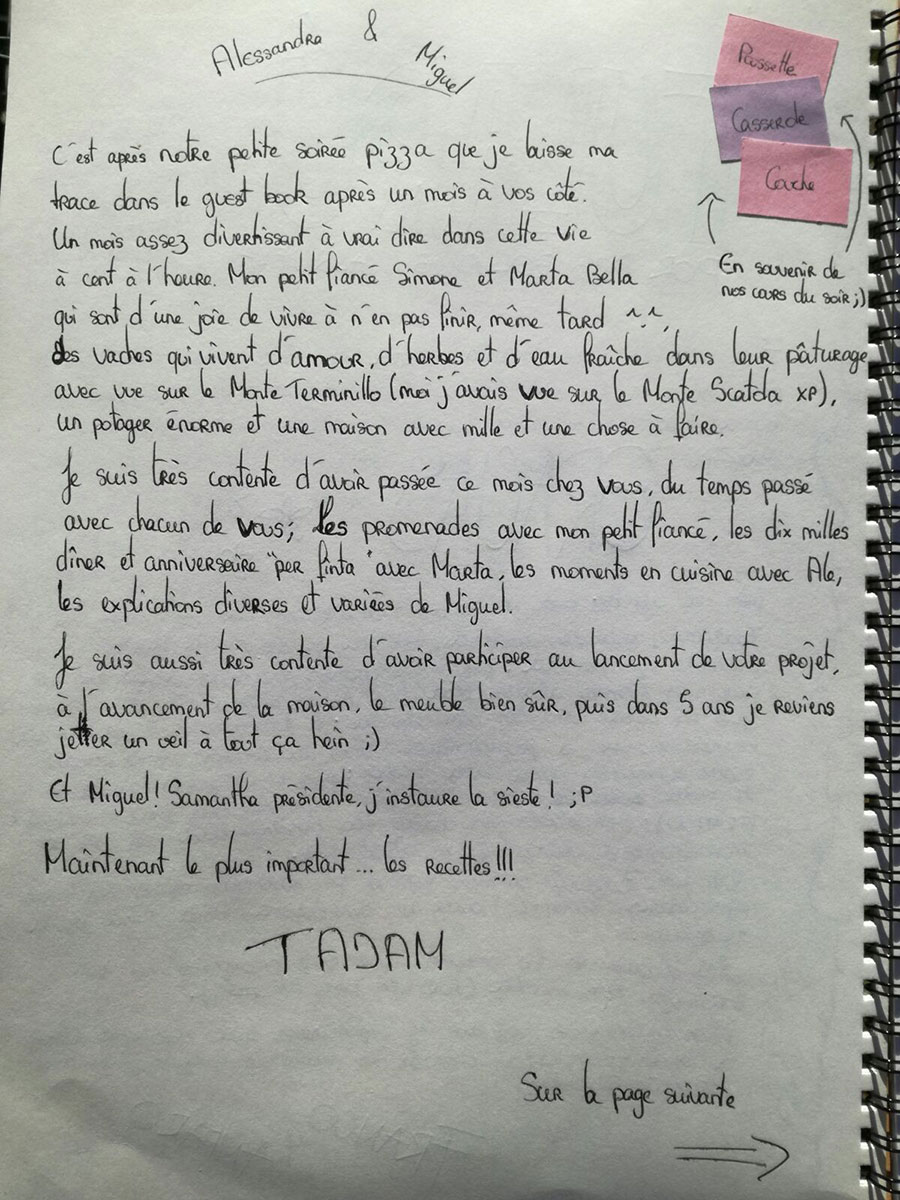 Alessandra & Miguel
Poussette
Casserole
Cache
En souvenir de
nos cours du soir ;)
C'est après notre petite soirée pizza que je laisse ma
trace dans le guest book après un mois à vos côté.
Un mois assez divertissant à vrai dire dans cette vie
à cent à l'heure. Mon petit fiancé Simone et Marta Bella
qui sont d'une joie de vivre à n'en pas finir, même tard ^^,
des vaches qui vivent d'amour, d'herbes et d'eau fraîche dans leur pâturage
avec vue sur le Monte Terminillo (moi j'avais vue sur le Monte Scatola xP),
un potager énorme et une maison avec mille et une chose à faire.
Je suis très contente d'avoir passée ce mois chez vous, du temps passé
avec chacun de vous; les promenades avec mon petit fiancé, les dix milles
dîner et anniverseire "per finta" avec Marta, les moments en cuisine avec Ale,
les explications diverses et variées de Miguel.
Je suis aussi très contente d'avoir participer au lancement de votre projet,
à l'avancement de la maison, le meuble bien sûr, puis dans 5 ans je reviens
jetter un oeil à tout ça hein ;)
Et Miguel! Samantha présidente, j'instaure la sieste! ;P
Maintenant le plus important... les recettes!!!
TADAM
Sur la page suivante